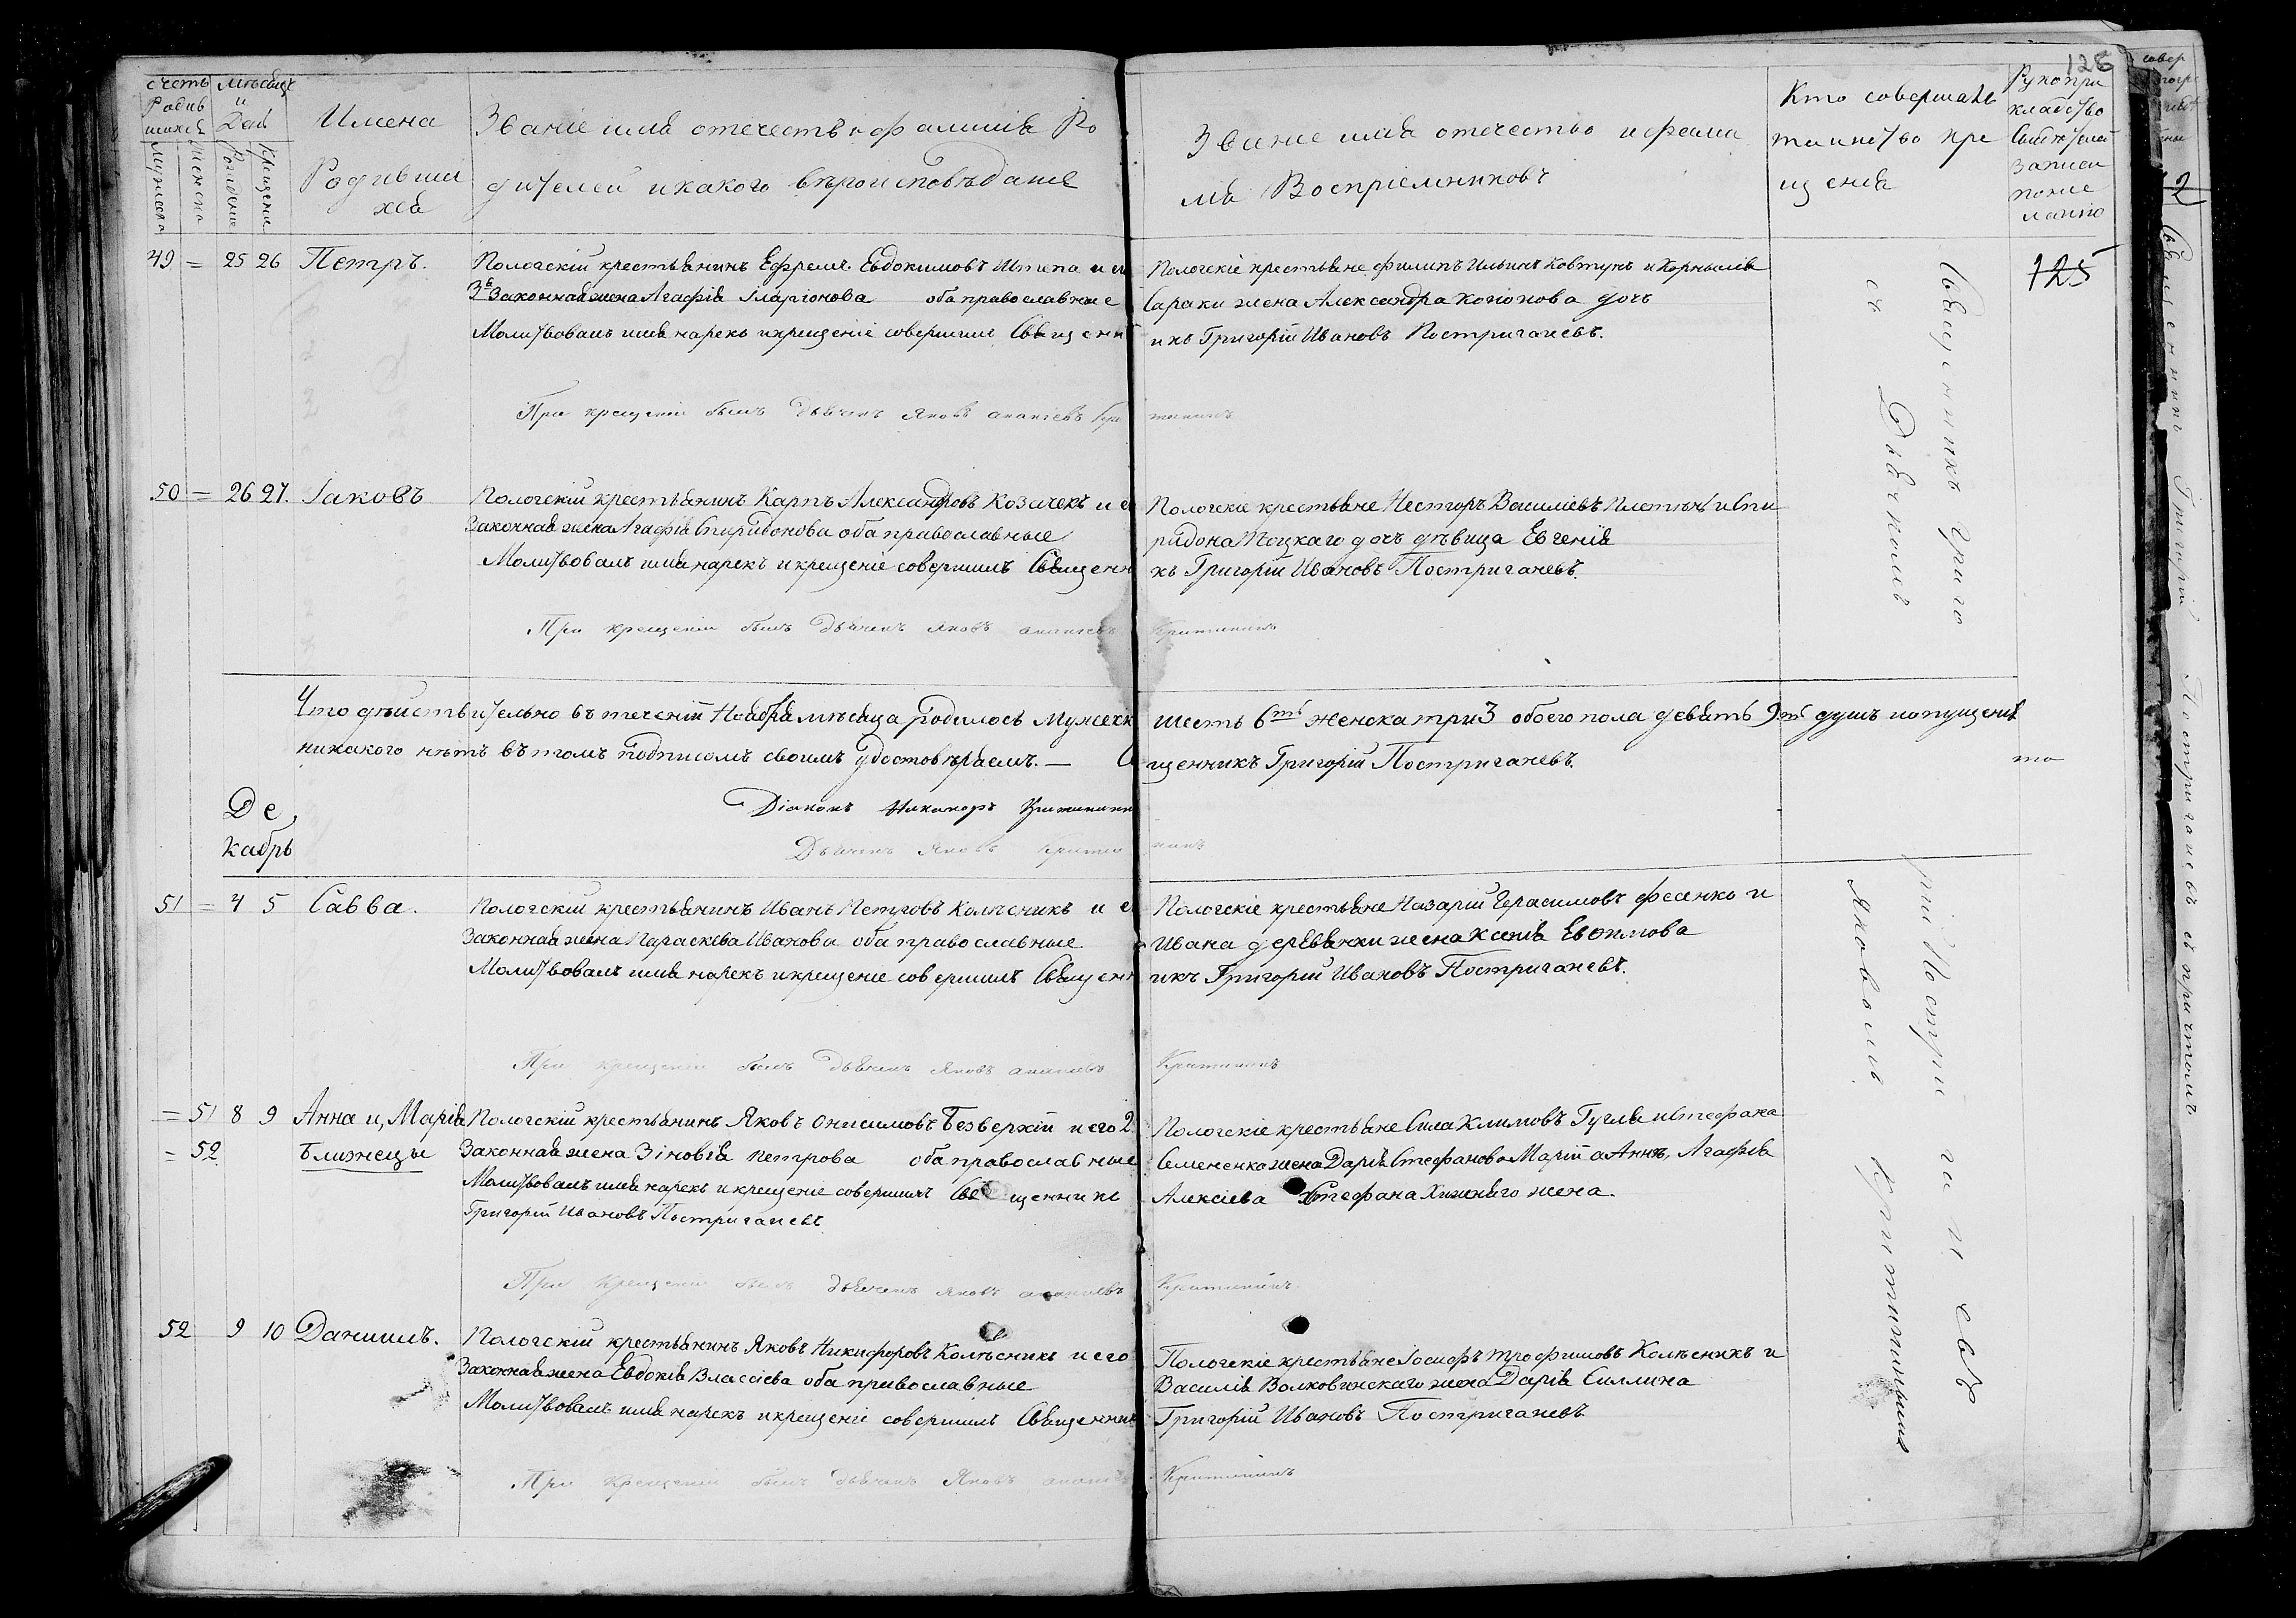 128
Счетъ Родившихся
Мужеска
Женска
Мѣсяцъ и День
Рожденія
Крещенія
Имена Родившихся
Званіе имя отечество и фамилія Ро
дителей и какого вѣроисповѣданія
Званіе имя отечество и фами
лія Воспріемниковъ
Кто совершалъ
таинство кре
щенія
Рукопри
кладство
Свидѣтелей
записи
по же
ланію
125
49 = 25 26 Петръ. Пологскій крестьянинъ Ефремъ Евдокимовъ и
Законная жена Агафія Иларіонова оба православные
Молитвовалъ имя нарекъ и крещеніе совершилъ Священ
Пологскіе крестьяне Филипъ Ильинъ Ковтунъ и Корнилія
Сараки жена Александра дочь
икъ Григорій Ивановъ Постриганевъ.
При крещеніи былъ Дьячекъ Яковъ Ананіевъ
50 = 26 27. Іаковъ Пологскій крестьянинъ Карпъ Александровъ Козачекъ и е
Законная жена Агафія Спиридонова оба православные
Молитвовалъ имя нарекъ и крещеніе совершилъ Священн
Пологскіе крестьяне Несторъ Василіевъ и Спи
ридона дочъ дѣвица Евгенія
къ Григорій Ивановъ Постриганевъ.
При крещеніи былъ Дьячекъ Яковъ Ананіевъ Критининъ
Что дѣиствительно въ теченіи Ноября мѣсяца родилось Мужеск шесть 6ть женска три 3 обоего пола девять 9ть душъ и опущенія
никакого нѣтъ въ томъ подписомъ своимъ удостовѣряемъ. — С щенникъ Григорій Постриганевъ.
Діаконъ Никаноръ
Дьячекъ Яковъ
Де
кабрь
51 = 4 5 Савва. Пологскій крестьянинъ Иванъ Петровъ Колѣсникъ и е
Законная жена Параскева Иванова оба православные
Молитвовалъ имя нарекъ и крещеніе совершилъ Священ
Пологскіе крестьяне Назарій Герасимовъ Фесенко и
Ивана деревянки жена Ксенія Евѳимова
икъ Григорій Ивановъ Постриганевъ.
При крещеніи былъ Дьячекъ Яковъ Ананіевъ Критининъ
= 51 8 9 Анна и, Марія Пологскій крестьянинъ Яковъ Онисимовъ Безверхій и его 2
= 52 Близнецы Законная жена Зіновія Петрова оба православные
Молитвовалъ имя нарекъ и крещеніе совершилъ Священникъ
Григорій Ивановъ Постриганевъ
Пологскіе крестьяне Сила Климовъ Гугля и Стефана
Семененко жена Дарія Стефанова Маріи а Аннѣ, Агафія
Алексіева Стефана жена.
При крещеніи былъ Дьячекъ Яковъ Ананіевъ Критининъ
52 9 10 Даніилъ. Пологскій крестьянинъ Яковъ Никифоровъ Колѣсникъ и его
Законная жена Евдокія Власіева оба православные
Молитвовалъ имя нарекъ и крещеніе совершилъ Священник
Пологскіе крестьяне Іосифъ Трофимовъ Колѣсникъ и
Василія Волковинскаго жена Дарія Силлина
Григорій Ивановъ Постриганевъ.
При крещеніи былъ Дьячекъ Яковъ Критининъ
Священникъ Григо
рій Постриганевъ
съ Дьячкомъ
Яковомъ Критининымъ